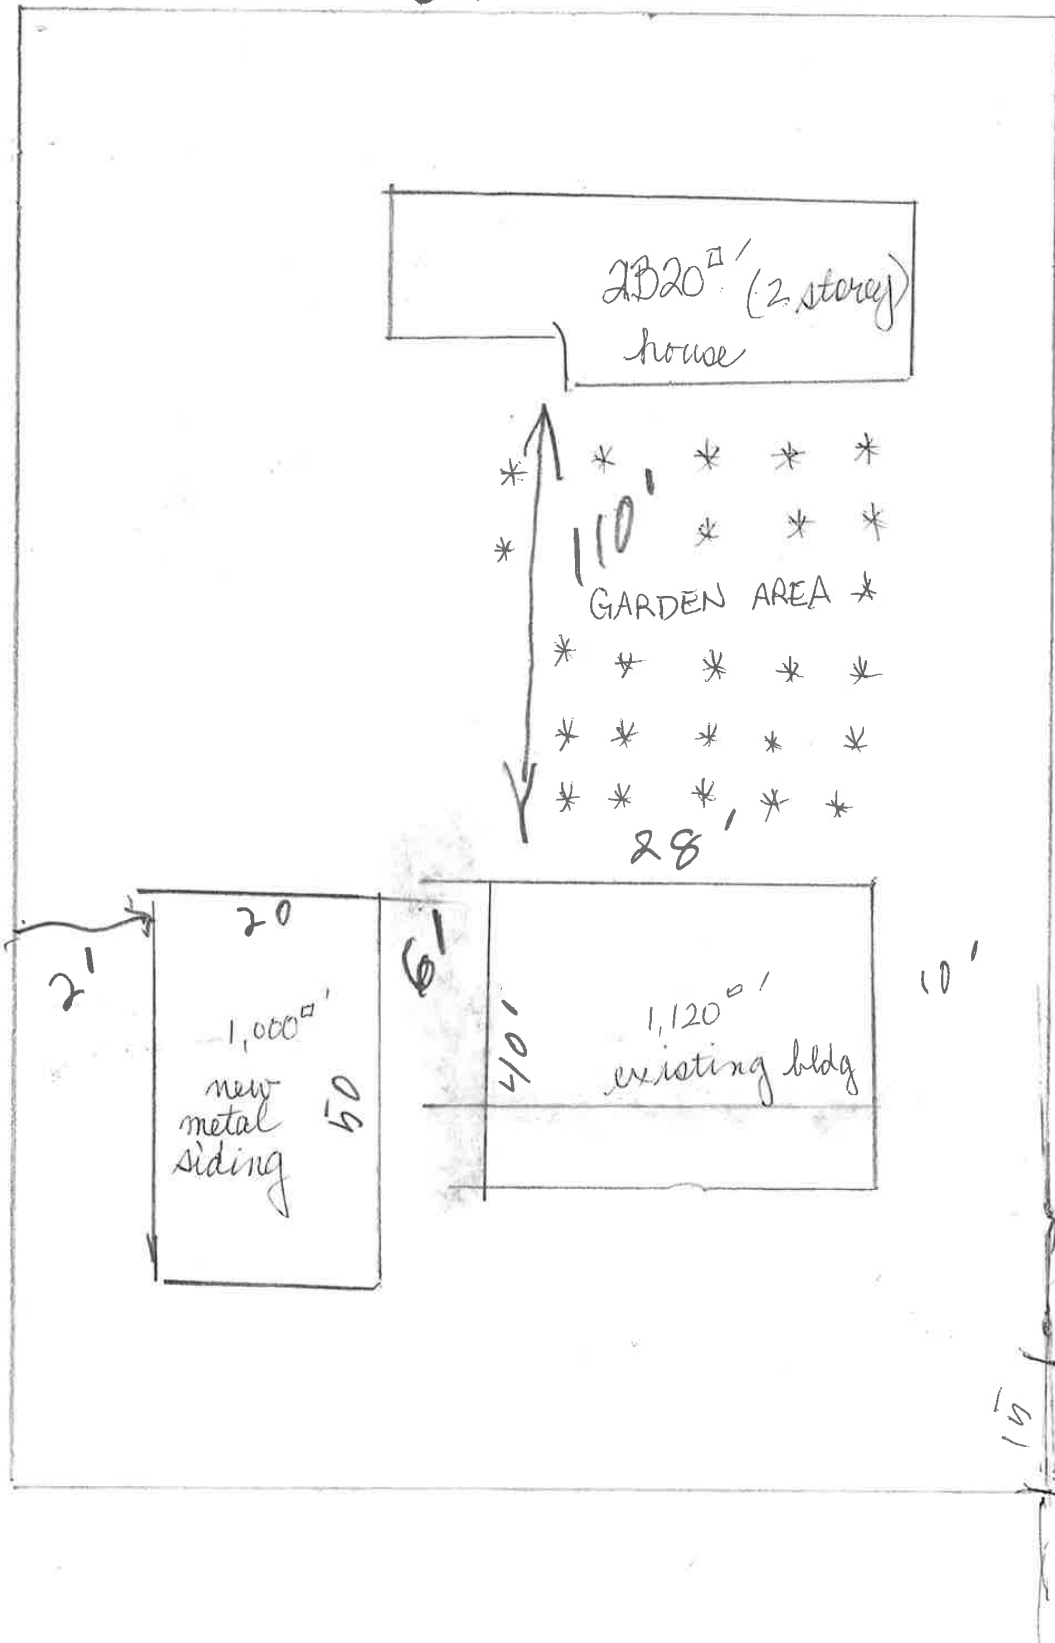 2320□' (2 storey)
house
110'
GARDEN AREA
28'
2'
20
6'
10'
1,000□'
new
metal
siding
50
40'
1,120□'
existing bldg
15